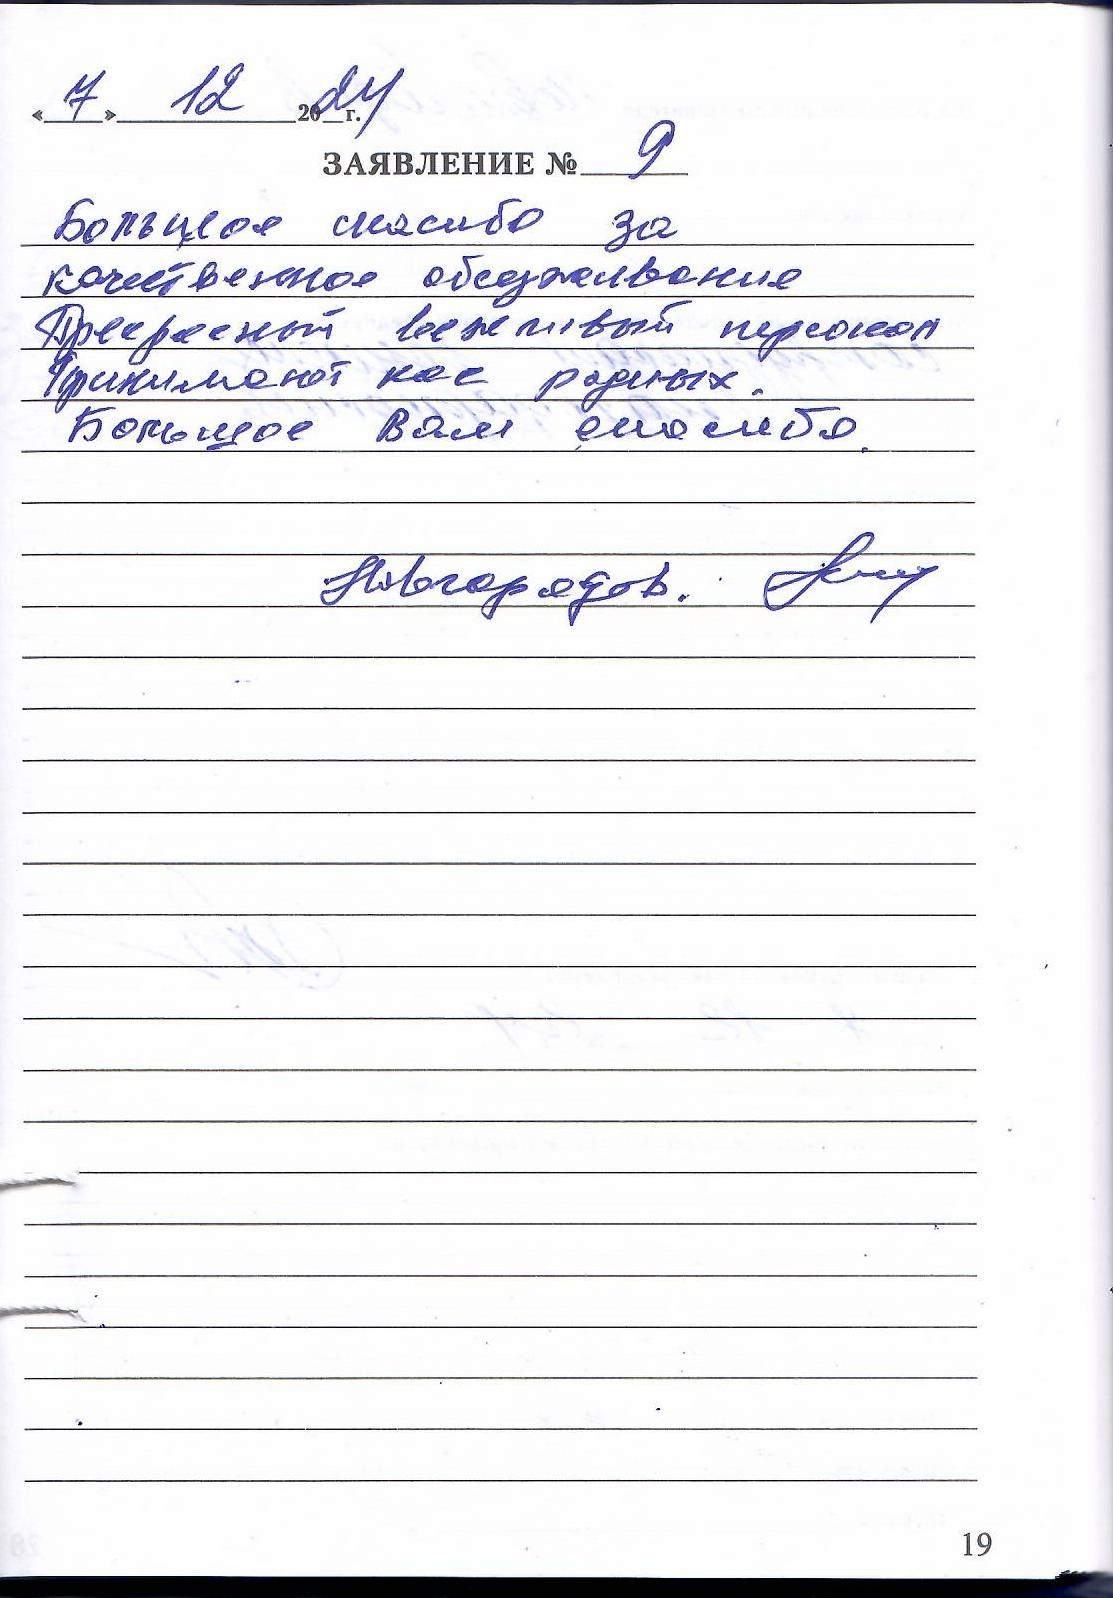 «7» 12 2024 г.
ЗАЯВЛЕНИЕ № 9
Большое спасибо за
качественное обслуживание
Прекрасный вежливый персонал
Принимают как родных.
Большое Вам спасибо.
Новгородов.
19